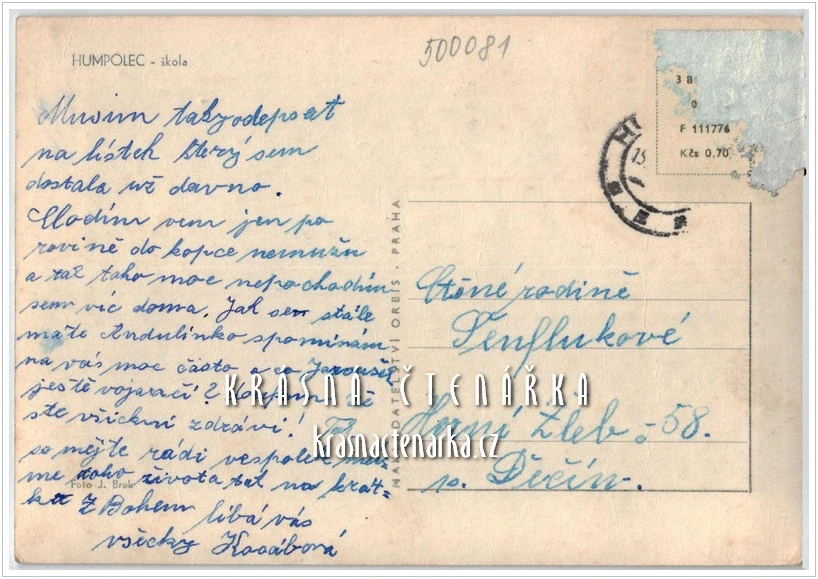 HUMPOLEC - škola
500081
Musim taky odepsat
na lístek který sem
dostala už davno.
Chodím ven jen po
rovině do kopce nemužu
a tak toho moc nepochodím
sem víc doma. Jak se stále
mate Andulinko spominám
na vás moc často a co Jaroušek
ještě vojaračí?
ste všickni zdrávi! Tak
se mějte rádi vespolek
me toho života tak na krát-
ko Z Bohem líbá vás
všecky
Foto J. Brok
NAKLADATELSTVÍ ORBIS · PRAHA
3 8
0
F 111776
Kčs 0.70
15.
Ctěné rodině
Šenflukové
Horní Žleb č 58.
p. Děčín.
KRÁSNÁ ČTENÁŘKA
krasnactenarka.cz